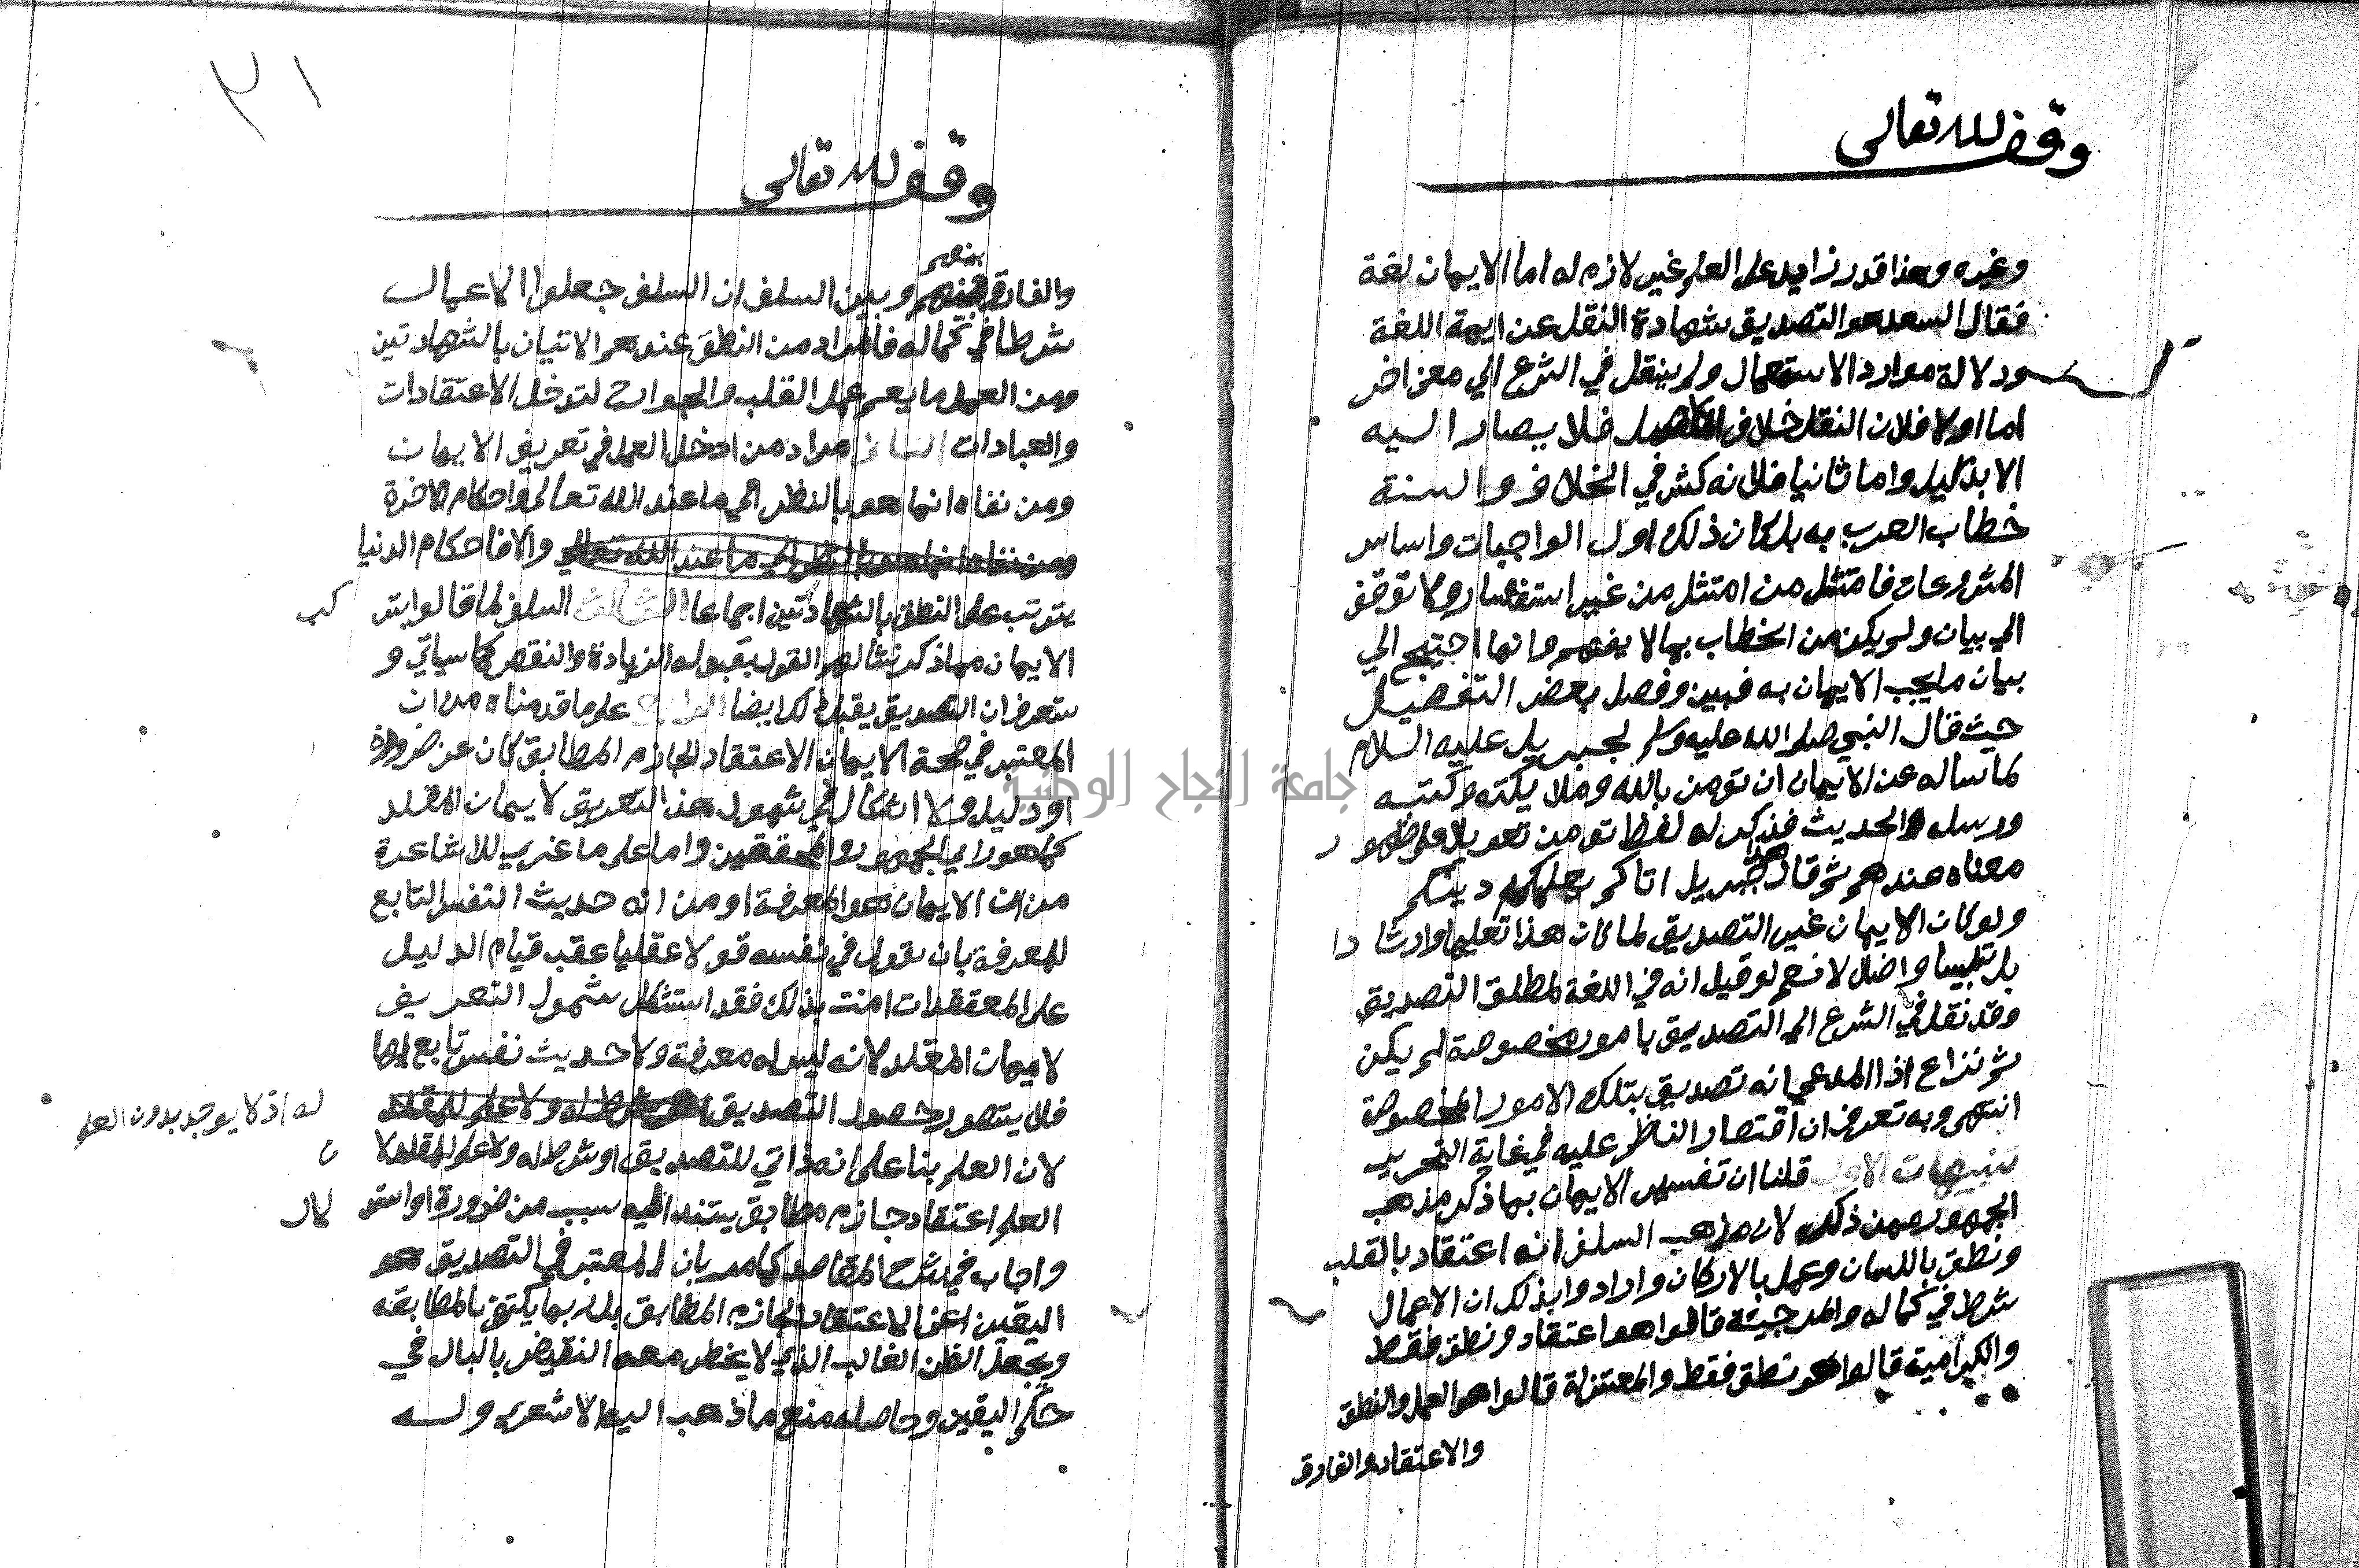 وقف لله تعالى
وغيره وهذا قدر زايد على العلم غير لازم له اما الايمان لغة
فقال السعد هو التصديق بشهادة النقل عن ايمة اللغة
ودلالة موارد الاستعمال ولم ينقل في الشرع الي معنى اخر
اما اولا فلان النقل خلاف الاصل فلا يصار اليه
الا بدليل واما ثانيا فلانه كثر في الخلاف والسنة
خطاب العرب به بل كان ذلك اول الواجبات واساس
المشروعات فامتثل من امتثل من غير استفسار ولا توقف
الي بيان ولم يكن من الخطاب بما لا يفهم وانما احتيج الي
بيان ما يجب الايمان به فبين وفصل بعض التفصيل
حيث قال النبي صلى الله عليه وسلم لجبريل عليه السلام
لما ساله عن الايمان ان تومن بالله وملايكته وكتبه
ورسله الحديث فذكر له لفظ تومن تعويلا على ظهور
معناه عندهم ثم قال هذا جبريل اتاكم يعلمكم دينكم
ولو كان الايمان غير التصديق لما كان هذا تعليما وارشادا
بل تلبيسا واضلالا نعم لو قيل انه في اللغة لمطلق التصديق
وقد نقل في الشرع الى التصديق بامور مخصوصة لم يكن
ثم نزاع اذ المدعي انه تصديق بتلك الامور المخصوصة
انتهى وبه تعرف ان اقتصار الناظم عليه في غاية التحرير
تنبيهات الاول قلنا ان تفسير الايمان بما ذكر مذهب
الجمهور ممن ذكر لان مذهب السلف انه اعتقاد بالقلب
ونطق باللسان وعمل بالاركان وارادوا بذلك ان الاعمال
شرط في كماله والمرجئة قالوا هو اعتقاد ونطق فقط
والكرامية قالوا هو نطق فقط والمعتزلة قالوا هو العمل والنطق
والاعتقاد والفارق
٣١
وقف لله تعالى
بينهم
والفارق بينهم وبين السلف ان السلف جعلوا الاعمال
شرطا في كماله فالمراد من النطق عندهم الاتيان بالشهادتين
ومن العمل ما يعم عمل القلب والجوارح لتدخل الاعتقادات
والعبادات مراد من ادخل العمل في تعريف الايمان
ومن نفاه انما هو بالنظر الي ما عند الله تعالى واحكام الاخرة
ومن نفاه انما هو بالنظر الي ما عند الله تعالي والا فاحكام الدنيا
يترتب على النطق بالشهادتين اجماعا الثالث السلف لما قالوا بتر
كب
الايمان مما ذكر نشا لهم القول بقبوله الزيادة والنقص كما سياتي و
ستعرف ان التصديق يقبل ذلك ايضا الرابع على ما قدمناه من ان
المعتبر في صحة الايمان الاعتقاد الجازم المطابق كان عن ضرورة
او دليل ولا اشكال في شمول هذا التعريف لايمان المقلد
كما هو راي الجمهور والمحققين واما على ما عزي للاشاعرة
من ان الايمان هو المعرفة او من انه حديث النفس التابع
للمعرفة بان يقول في نفسه قولا عقليا عقب قيام الدليل
على المعتقدات امنت بذلك فقد استشكل شمول التعريف
لايمان المقلد لانه ليس له معرفة ولا حديث نفس تابع لها
فلا يتصور حصول التصديق او شرط له ولا علم للمقلد
له اذ لا يوجد بدون العلم
لان العلم بنا على انه ذاتي للتصديق او شرط له ولا علم للمقلد لا
ن
العلم اعتقاد جازم مطابق يستند اليه سبب من ضرورة او استد
لال
واجاب في شرح المقاصد كما مر بان المعتبر في التصديق هو
اليقين اعني الاعتقاد الجازم المطابق بل ربما يكتفى بالمطابقة
ويجعل الظن الغالب الذي لا يخطر معه النقيض بالبال في
حكم اليقين وحاصله منع ما ذهب اليه الاشعرى وله
جامعة النجاح الوطنية